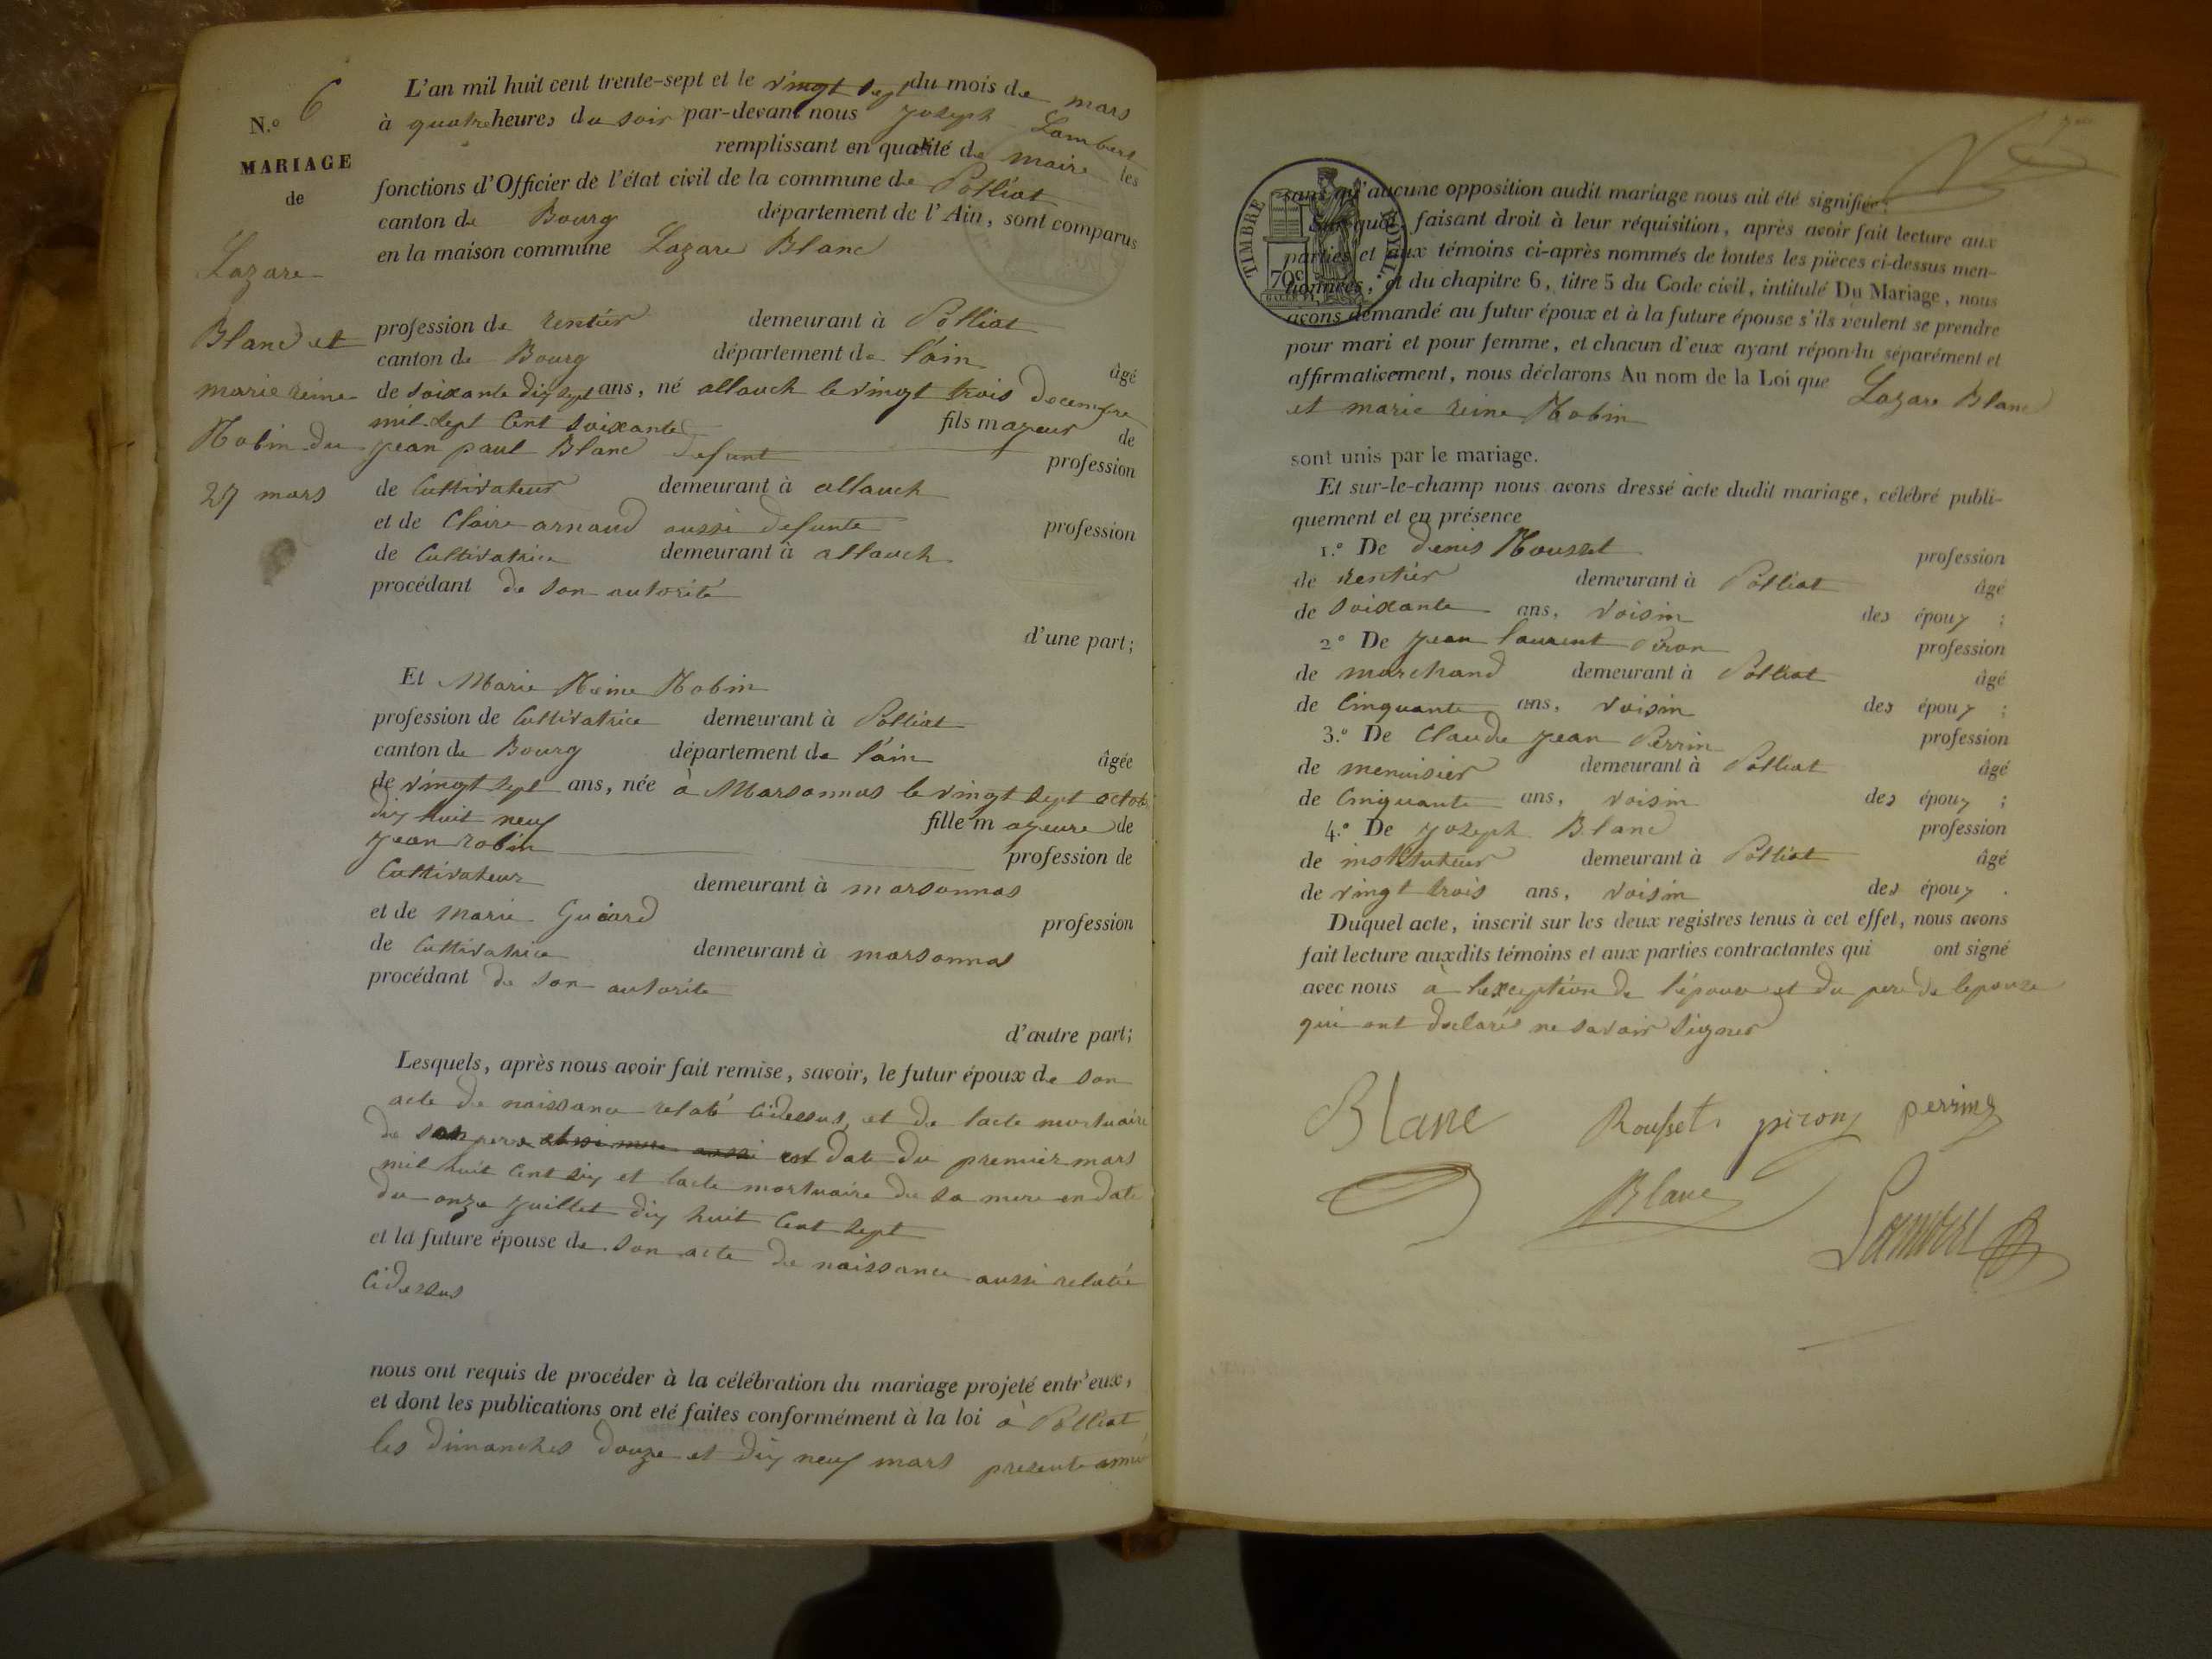 N.o 6
MARIAGE
de
Lazare
Blanc et
marie reine
Robin du
27 mars
L'an mil huit cent trente-sept et le vingt sept du mois de mars
à quatre heures du soir par-devant nous joseph Lambert
remplissant en qualité de maire les
fonctions d'Officier de l'état civil de la commune de Polliat
canton de Bourg département de l'Ain, sont comparus
en la maison commune Lazare Blanc
profession de rentier demeurant à Polliat
canton de Bourg département de l'ain âgé
de soixante dix sept ans, né allauch le vingt trois decembre
mil sept cent soixante fils majeur de
jean paul Blanc defunt profession
de Cultivateur demeurant à allauch
et de Claire arnaud aussi defunte profession
de Cultivatrice demeurant à allauch
procédant de son autorité
d'une part;
Et Marie Reine Robin
profession de Cultivatrice demeurant à Polliat
canton de Bourg département de l'ain âgée
de vingt sept ans, née à Marsonnas le vingt sept octob
dix huit neuf fille majeure de
jean robin profession de
Cultivateur demeurant à marsonnas
et de marie Guiard profession
de Cultivatrice demeurant à marsonnas
procédant de son autorite
d'autre part;
Lesquels, après nous avoir fait remise, savoir, le futur époux de son
acte de naissance relaté cidessus, et de lacte mortuaire
de son pere et sa mere aussi en date du premier mars
mil huit cent six et lacte mortuaire de sa mere en date
du onze juillet dix huit cent sept
et la future épouse de son acte de naissance aussi relatée
cidessus
nous ont requis de procéder à la célébration du mariage projeté entr'eux,
et dont les publications ont eté faites conformément à la loi à Polliat
les dimanches douze et dix neuf mars presente année
TIMBRE ROYAL.
70c
sans qu'aucune opposition audit mariage nous ait été signifiée.
Sur quoi, faisant droit à leur réquisition, après avoir fait lecture aux
parties et aux témoins ci-après nommés de toutes les pièces ci-dessus men-
tionnées, et du chapitre 6, titre 5 du Code civil, intitulé Du Mariage, nous
avons demandé au futur époux et à la future épouse s'ils veulent se prendre
pour mari et pour femme, et chacun d'eux ayant répondu séparément et
affirmativement, nous déclarons Au nom de la Loi que Lazare Blanc
et marie reine Robin
sont unis par le mariage.
Et sur-le-champ nous avons dressé acte dudit mariage, célébré publi-
quement et en présence
1.o De denis Rousset profession
de rentier demeurant à Polliat âgé
de soixante ans, voisin des époux ;
2o De jean laurent Piron profession
de marchand demeurant à Polliat âgé
de Cinquante ans, voisin des époux ;
3.o De Claude jean Perrin profession
de menuisier demeurant à Polliat âgé
de Cinquante ans, voisin des époux ;
4.o De joseph Blanc profession
de instituteur demeurant à Polliat âgé
de vingt trois ans, voisin des époux .
Duquel acte, inscrit sur les deux registres tenus à cet effet, nous avons
fait lecture auxdits témoins et aux parties contractantes qui ont signé
avec nous à l'exception de l'épouse et du pere de lepouse
qui ont declaré ne savoir signer
Blanc Rousset piron perrin
Blanc
Lambert